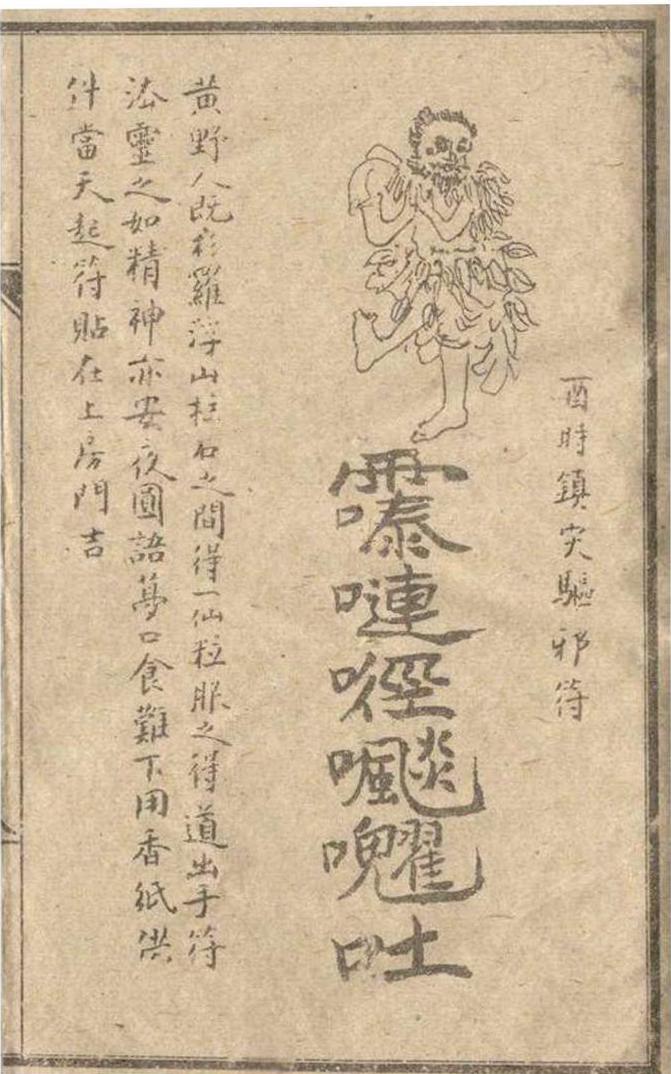 酉時鎮災驅邪符
嗹
吐
黄野人既於羅浮山柱石之間得一仙粒服之得道出手符
法靈之如精神亦安夜圓語夢口食難下用香紙供
件當天起符貼在上房門吉